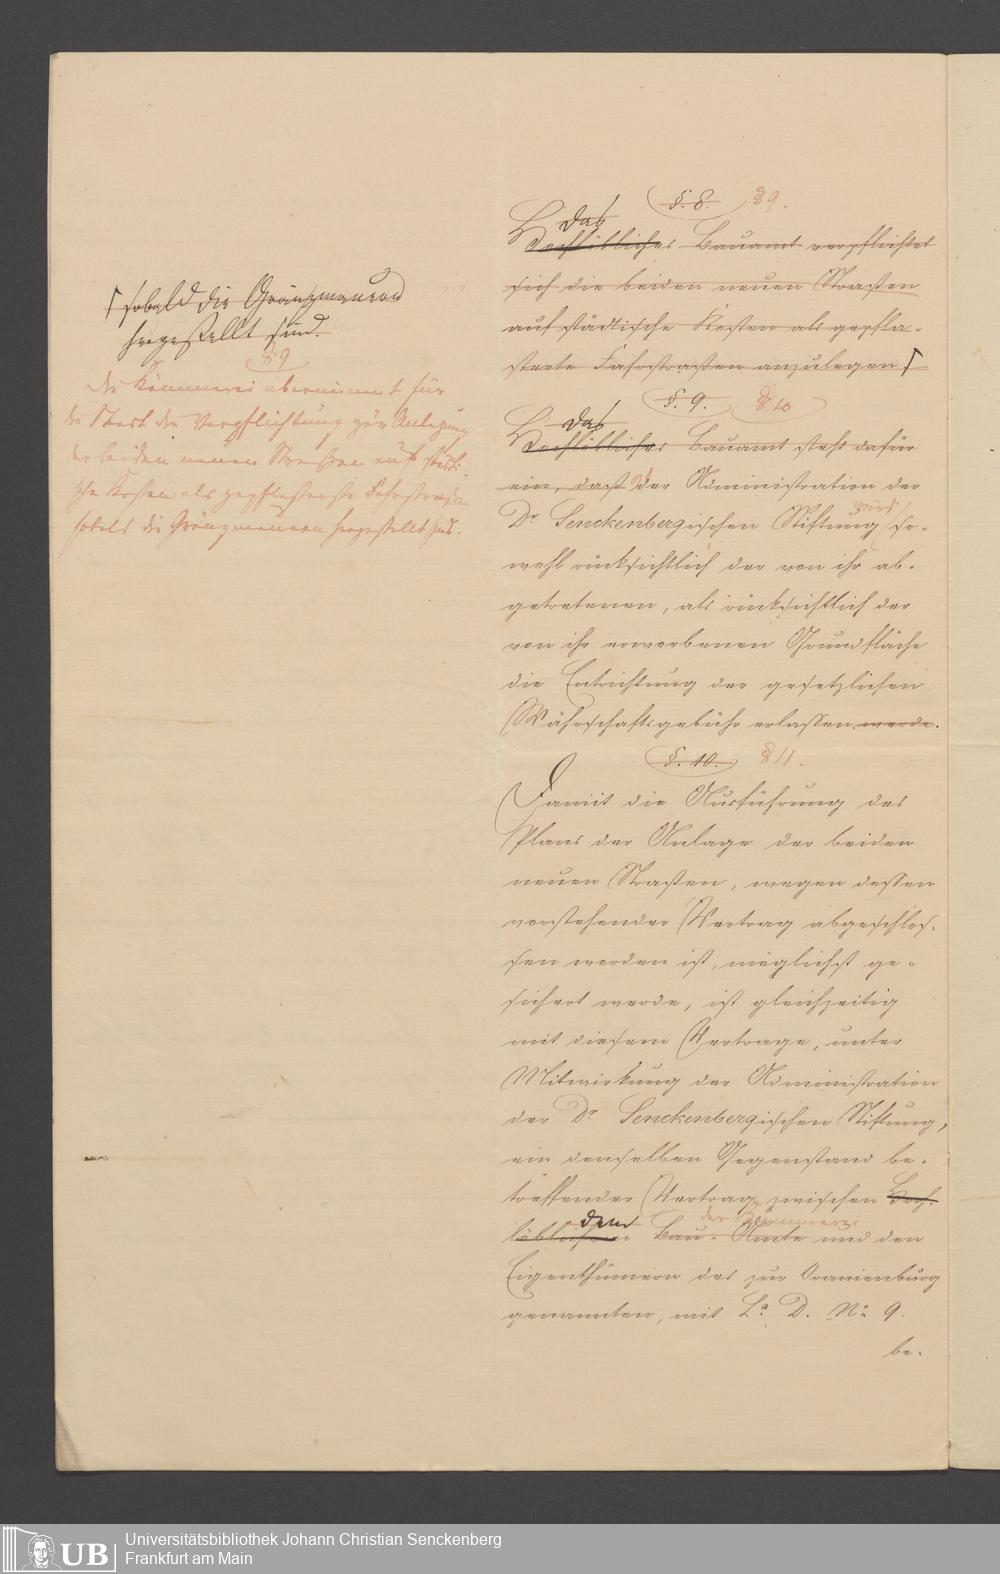 ⌈ sobald die Gränzmauern
hergestellt sind.
§ 9
Die Kämmerei übernimmt für
die Stadt die Verpflichtung zur Anlegung
der beiden neuen Straßen auf städti-
sche Kosten als gepflasterte Fahrstraßen
sobald die Gränzmauern hergestellt sind.
§. 8. § 9.
Das
Hochlöbliches Bauamt verpflichtet
sich die beiden neuen Straßen
auf städtische Kosten als gepfla-
sterte Fahrstraßen anzulegen ⌈
§. 9. § 10
Das
Hochlöbliches Bauamt steht dafür
ein, daß der Administration der
Dr Senckenbergischen Stiftung wird so-
wohl rücksichtlich der von ihr ab-
getretenen, als rücksichtlich der
von ihr erworbenen Grundfläche
die Entrichtung der gesetzlichen
Währschaftsgebühr erlassen werde.
§. 10. § 11.
Damit die Ausführung des
Plans der Anlage der beiden
neuen Straßen, wegen dessen
vorstehender Vertrag abgeschlos-
sen worden ist, möglichst ge-
sichert werde, ist gleichzeitig
mit diesem Vertrage, unter
Mitwirkung der Administration
der Dr Senckenbergischen Stiftung,
ein denselben Gegenstand be-
treffender Vertrag zwischen Hoch-
dem der Kämmerei
löblichem Bau-Amte und den
Eigenthümern des zur Oranienburg
genannten, mit La. D. No 9.
be-
UB
Universitätsbibliothek Johann Christian Senckenberg
Frankfurt am Main